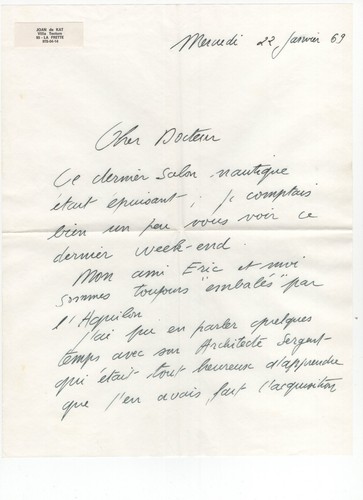 JOAN de KAT
Villa Fanion
95 - LA FRETTE
Mercredi 22 janvier 69
Cher Docteur
Ce dernier salon nautique
était épuisant ; je comptais
bien un peu vous voir ce
dernier week-end.
Mon ami Eric et moi
sommes toujours "embalés" par
l'Aquilon
J'ai pu en parler quelques
temps avec son Architecte Sergent
qui était tout heureuse d'apprendre
que j'en avais fait l'acquisition